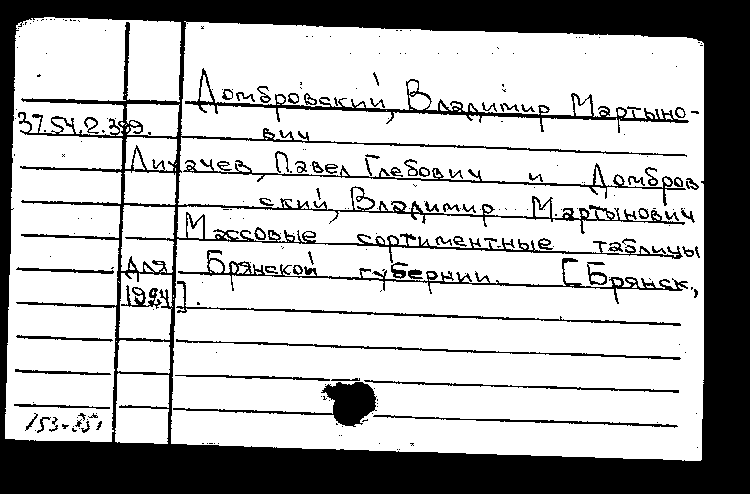 Домбровский, Владимир Мартыно-
37.54.2.399.
вич
Лихачев, Павел Глебович и Домбров-
ский, Владимир Мартынович
Массовые сортиментные таблицы
для Брянской губернии. [Брянск,
1924].
153-85г